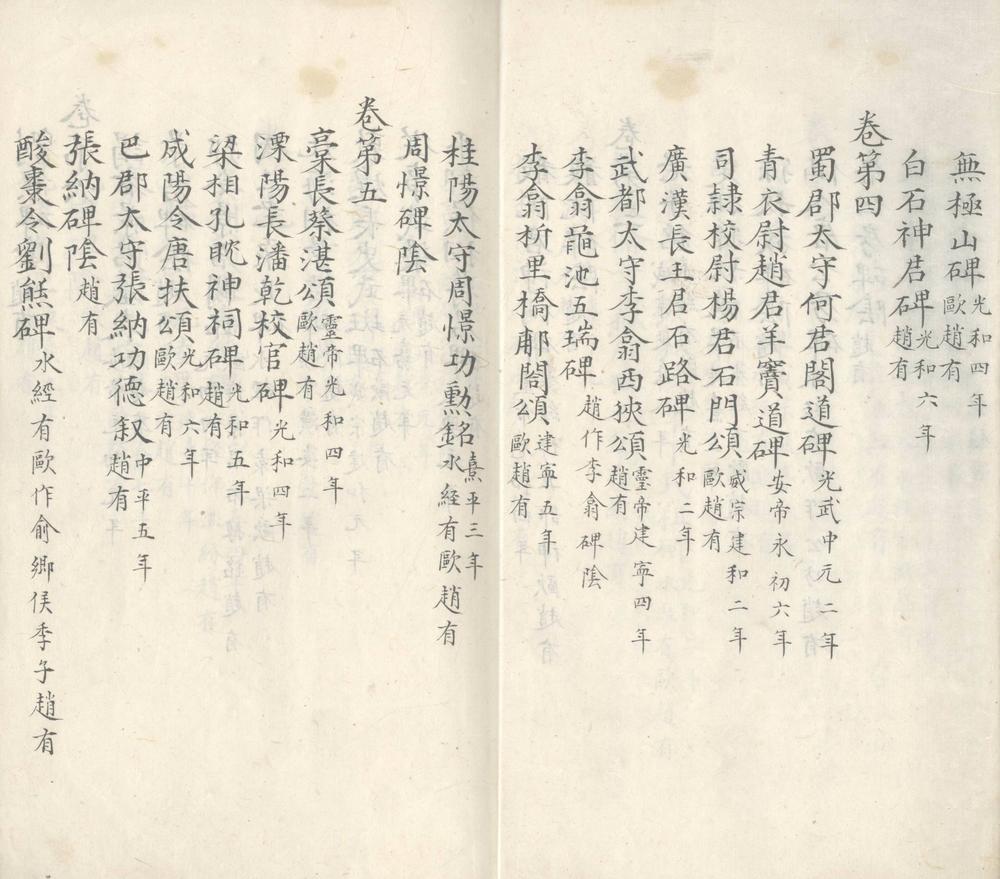 無極山碑光和四年歐趙有
白石神君碑光和六年趙有
卷第四
蜀郡太守何君閣道碑光武中元二年
青衣尉趙君羊竇道碑安帝永初六年
司隸校尉楊君石門頌威宗建和二年歐趙有
廣漢長王君石路碑光和二年
武都太守李翕西狹頌靈帝建寧四年趙有
李翕黽池五瑞碑趙作李翕碑陰
李翕析里橋郙閣頌建寧五年歐趙有
桂陽太守周憬功勲銘熹平三年水經有歐趙有
周憬碑陰
卷第五
稾長蔡湛頌靈帝光和四年歐趙有
溧陽長潘乾校官碑光和四年
梁相孔耽神祠碑光和五年趙有
成陽令唐扶頌光和六年歐趙有
巴郡太守張納功德叙中平五年趙有
張納碑陰趙有
酸棗令劉熊碑水經有歐作俞鄉侯季子趙有